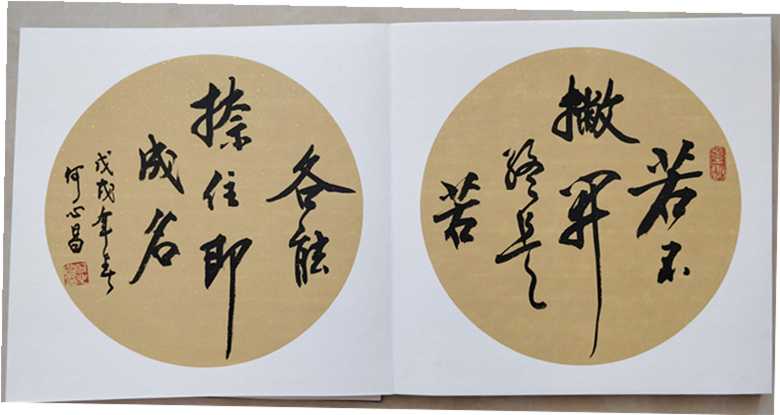 若不
撇開
終是
苦
各能
捺住即
成名
戊戌年春
何心昌